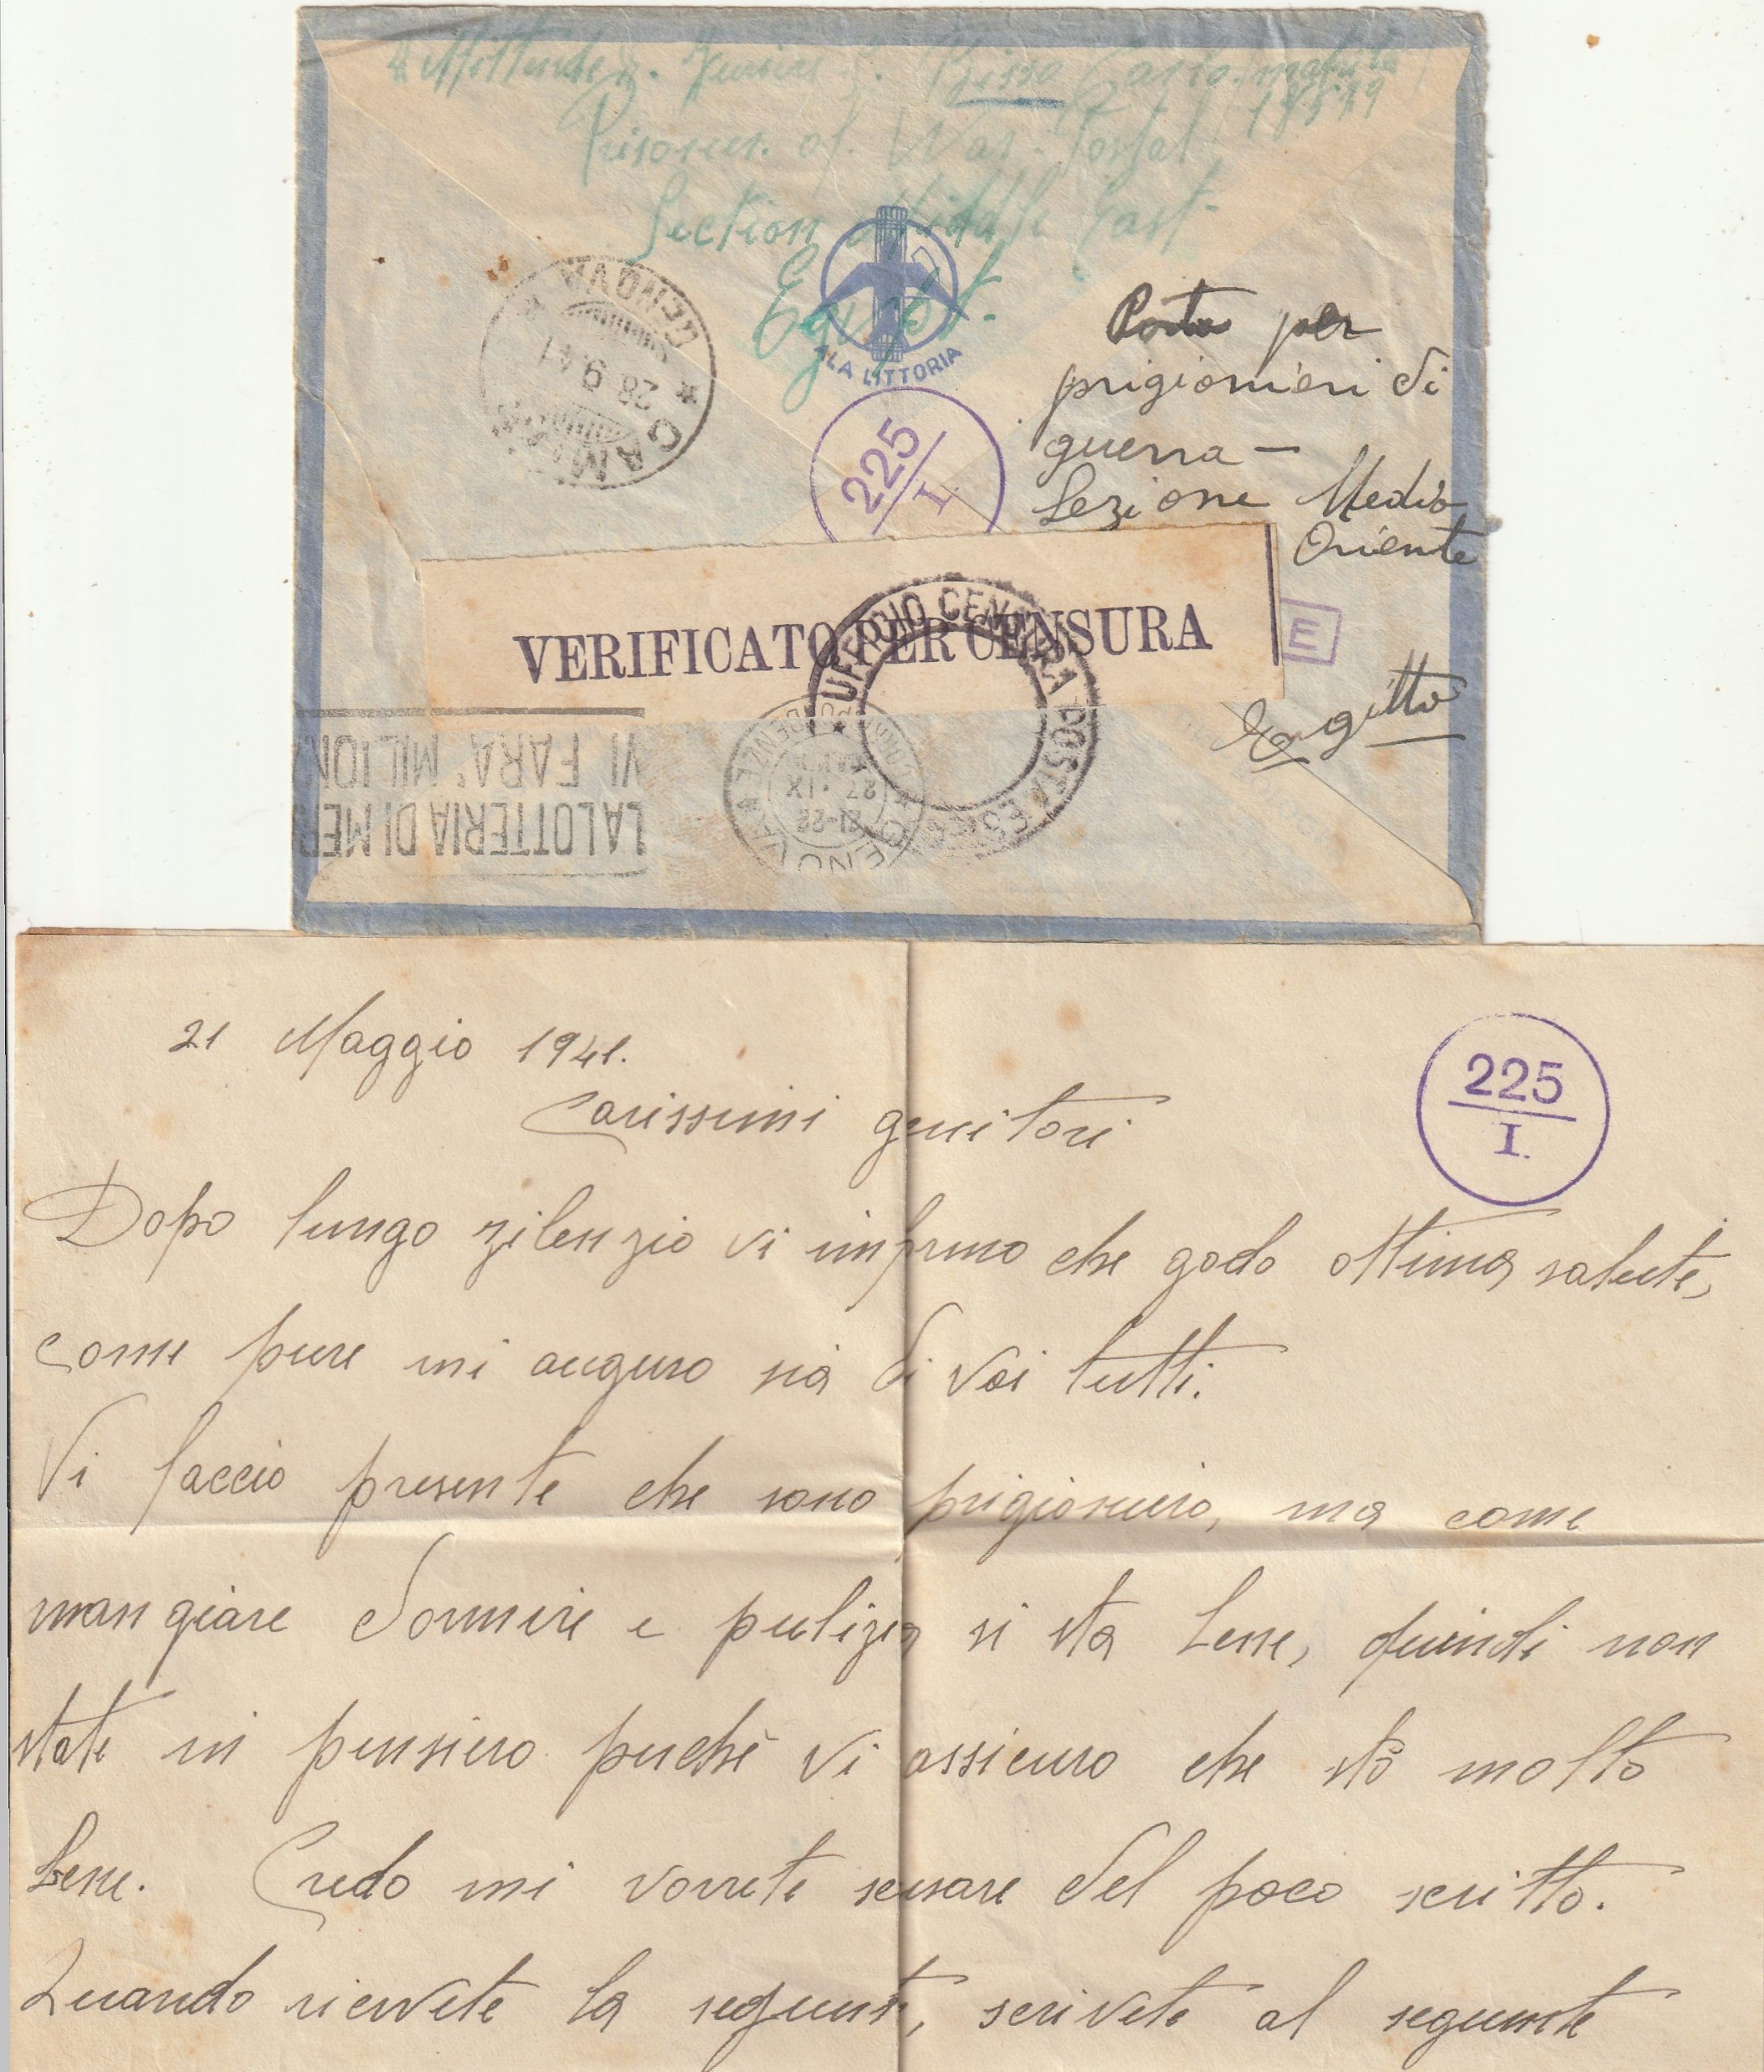 Mittente
Risso Carlo matricola
Prisoner. of. War. Postal
Section Middle East.
Egypt.
ALA LITTORIA
GENOVA
28.9.41
CAMOGLI
225
I.
Posta per
prigionieri di
guerra —
Sezione Medio
Oriente
Egitto
VERIFICATO PER CENSURA
UFFICIO CENSURA POSTA ESTERA
E
LA LOTTERIA DI MER
VI FARA' MILION
GENOVA
21-22
27 . IX
21 Maggio 1941.
225
I.
Carissimi genitori
Dopo lungo zilenzio vi informo che godo ottima salute,
come pure mi auguro sia di voi tutti.
Vi faccio presente che sono prigioniero, ma come
mangiare dormire e pulizia si sta bene, quindi non
state in pensiero perchè vi assicuro che stò molto
bene. Credo mi vorrete scusare del poco scritto.
Quando ricevete la seguente, scrivete al seguente